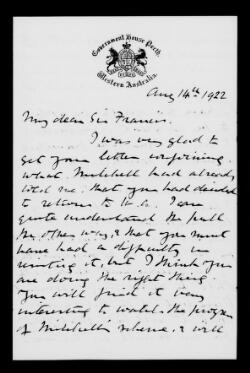 Government House, Perth,
Western Australia.
Aug 14th 1922
My dear Sir Francis.
I was very glad to
get your letter confirming
what Mitchell had already
told me, that you had decided
to return to W.A. I can
quite understand the pull
the other way, & that you must
have had a difficulty in
resisting it, but I think you
are doing the right thing.
You will find it very
interesting to watch the progress
of Mitchell's scheme, & will